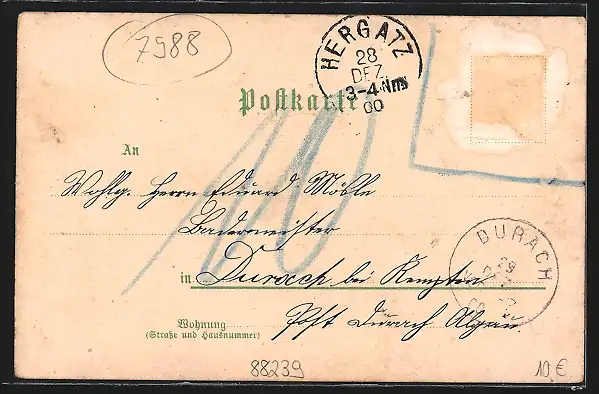 7988
HERGATZ
28
DEZ
3-4 Nm
00
Postkarte
10
An
Wohlg. Herrn Eduard Möhle
Bademeister
in Durach bei Kempten
DURACH
29
DEZ
Wohnung
(Straße und Hausnummer)
Post Durach Algäu.
88239
10 €